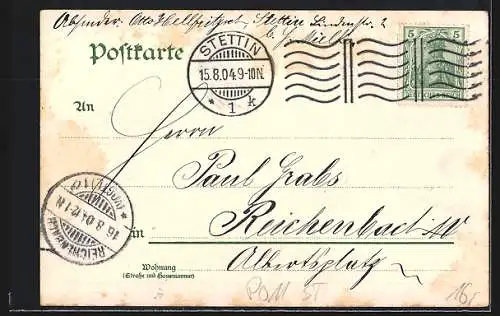 Absender: Otto Hellpirgst, Stettin Lindenstr. 2
Postkarte
STETTIN
15.8.04.9-10N.
* 1 k
5 5
An
Herrn
Paul Grabs
Reichenbach i/V
in
Albertsplatz
REICHENBACH
16.8.04.12-1N.
* (VOGTL) 1 c
Wohnung
(Straße und Hausnummer)
POM ST
16,